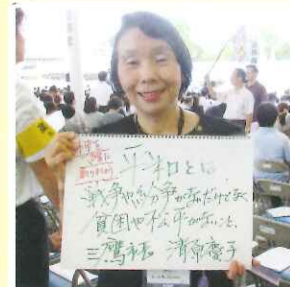 平和とは
戦争や紛争がないだけでなく
貧困や不公平がないこと。
三鷹市長 清原慶子